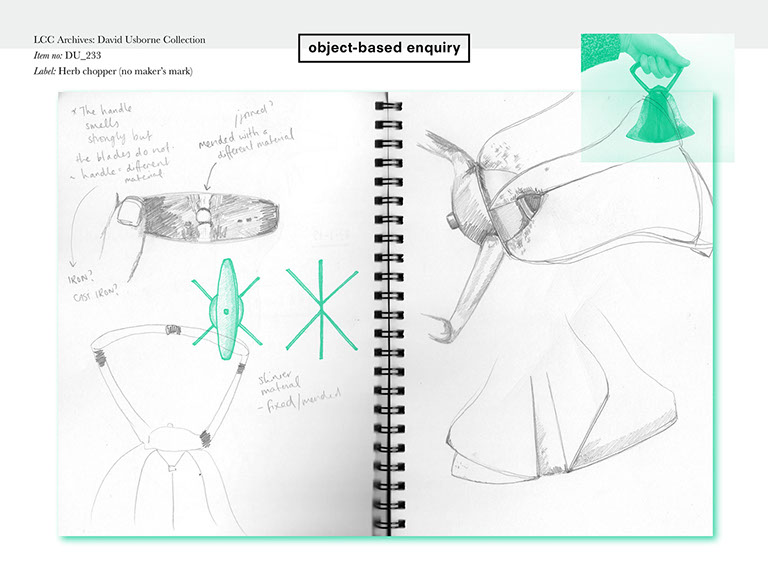 LCC Archives: David Usborne Collection
Item no: DU_233
Label: Herb chopper (no maker's mark)
object-based enquiry
* The handle
smells
strongly but
the blades do not.
~ handle = different
material
/joined?
mended with a
different material
IRON?
CAST IRON?
shinier
material
- fixed/mended